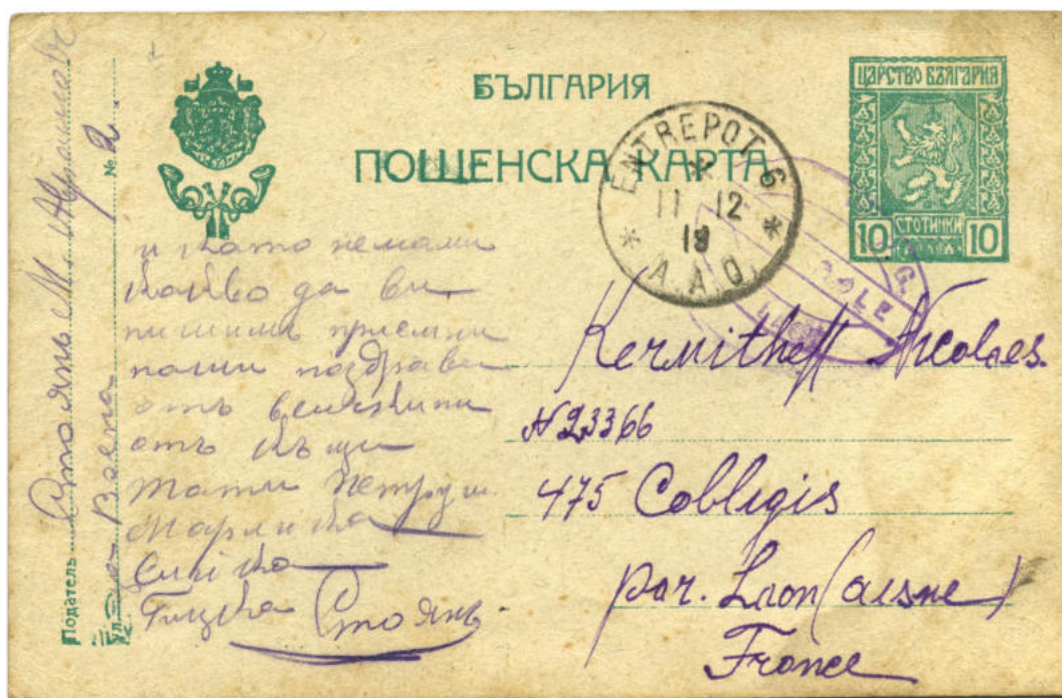 БЪЛГАРИЯ
ПОЩЕНСКА КАРТА
ЦАРСТВО БЪЛГАРИЯ
10 СТОТИНКИ 10
ENTREPOT 6
11 12
19
* A.A.O. *
Податель Стоянъ М.
№ 2
и като немами
какво да ви
пишимъ приемни
наши поздрави
отъ всички ни
отъ къщи
Тати Петруш
Марийка
Стоянъ
Kermitheff Nicolaes.
N 23366
475 Colligis
par. Laon (aisne)
France